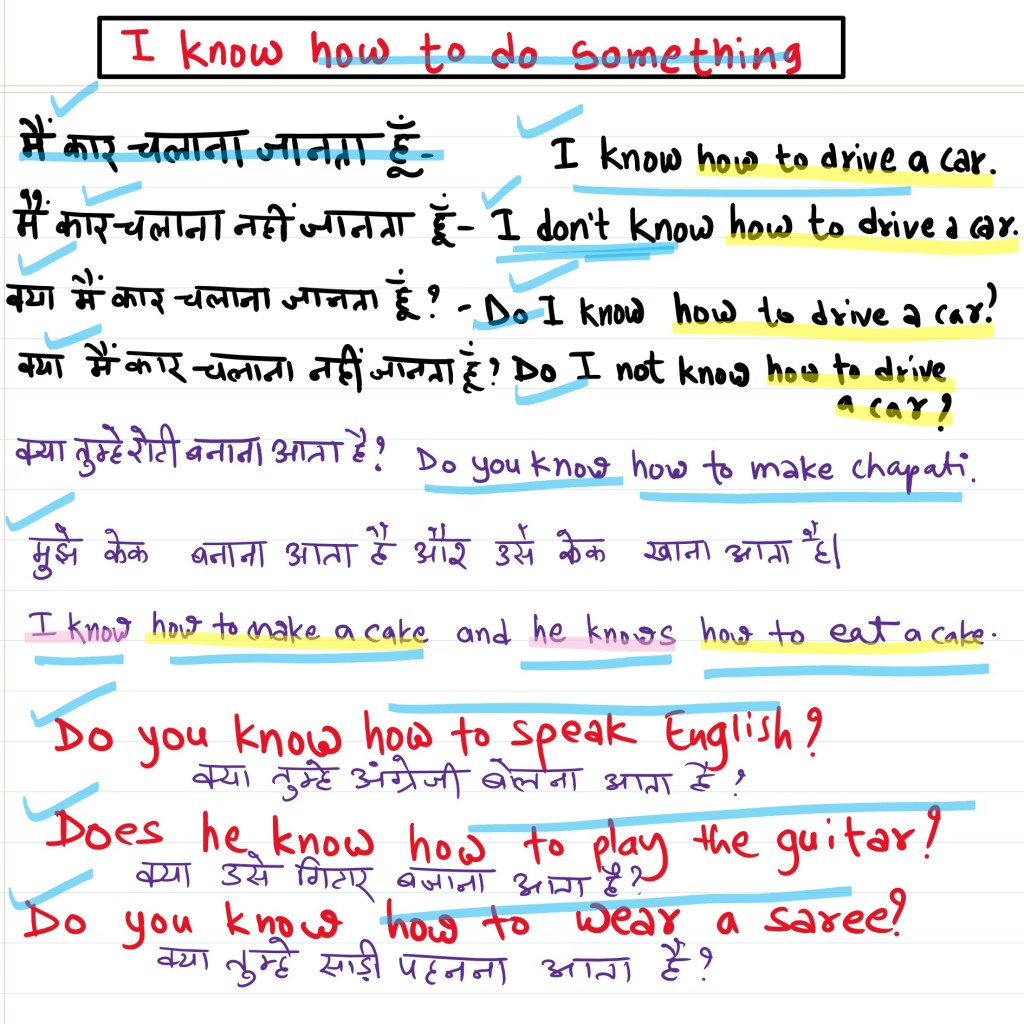 I know how to do something
मैं कार चलाना जानता हूँ- I know how to drive a car.
मैं कार चलाना नहीं जानता हूँ- I don't know how to drive a car.
क्या मैं कार चलाना जानता हूँ? - Do I know how to drive a car?
क्या मैं कार चलाना नहीं जानता हूँ? Do I not know how to drive
a car?
क्या तुम्हे रोटी बनाना आता है? Do you know how to make chapati.
मुझे केक बनाना आता है और उसे केक खाना आता है।
I know how to make a cake and he knows how to eat a cake.
Do you know how to speak English?
क्या तुम्हे अंग्रेजी बोलना आता है?
Does he know how to play the guitar?
क्या उसे गिटार बजाना आता है?
Do you know how to wear a saree?
क्या तुम्हे साड़ी पहनना आता है?